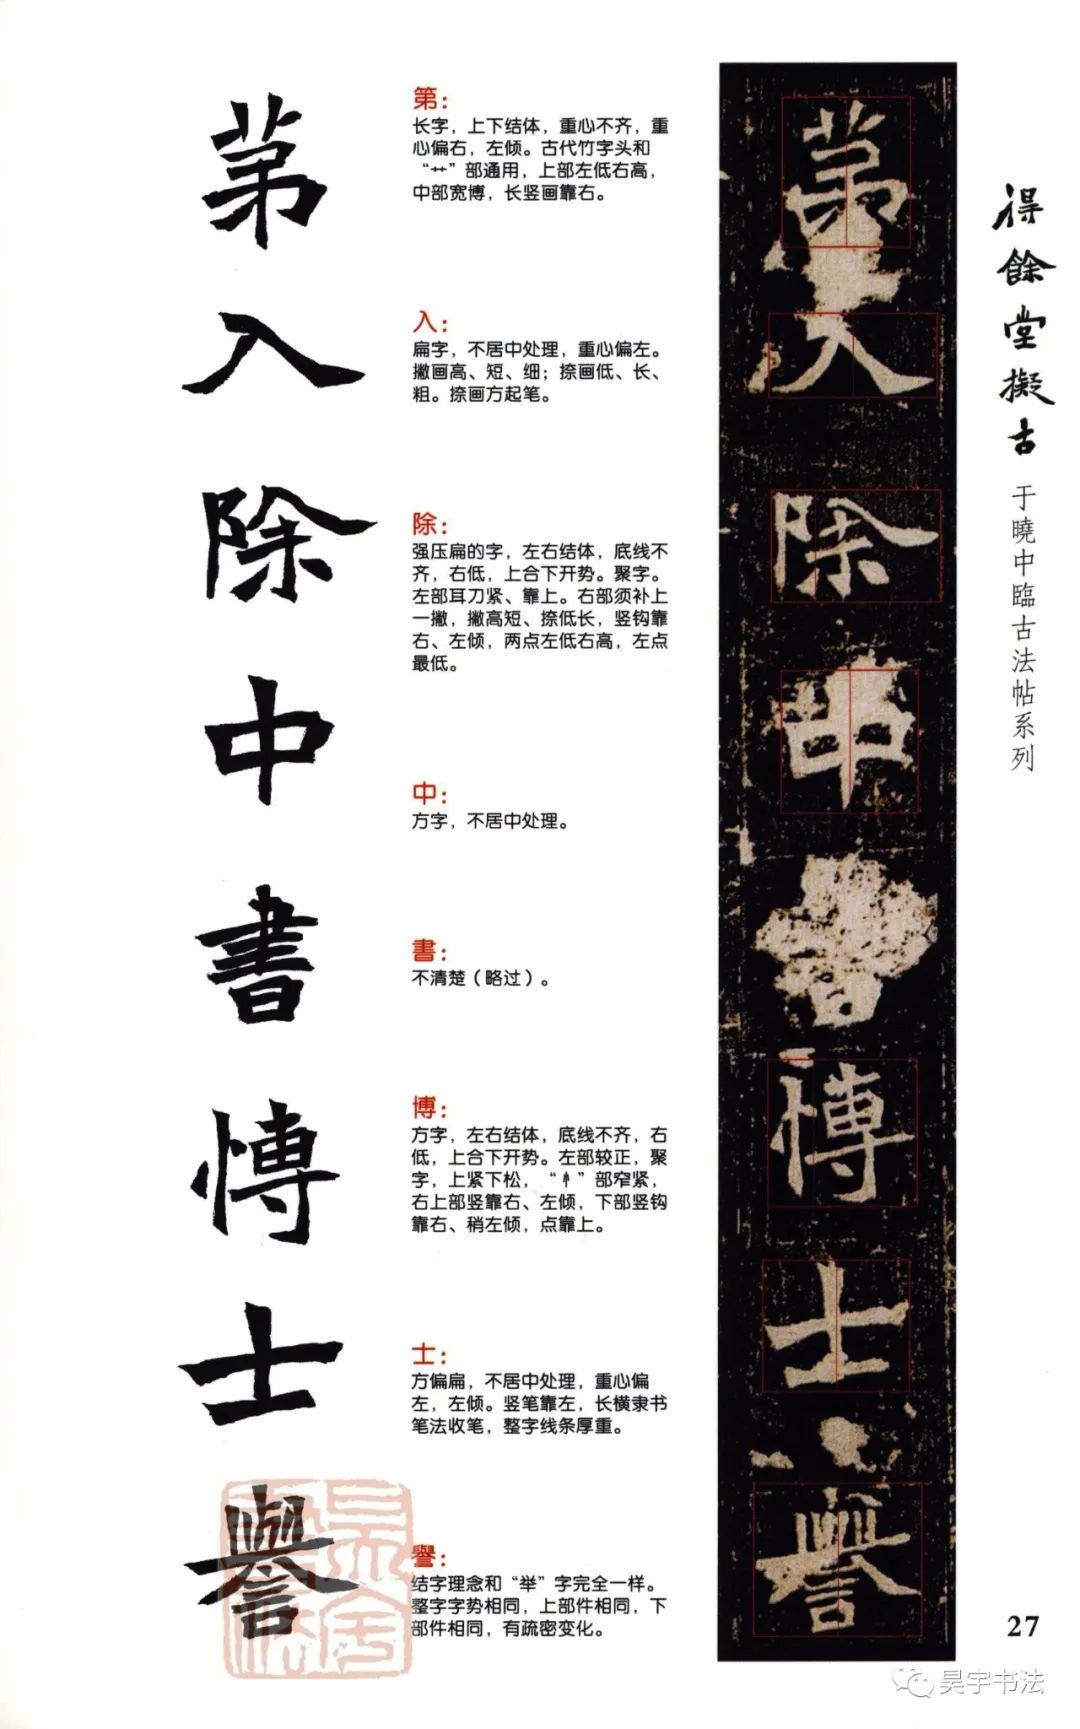 第
入
除
中
書
博
士
譽
第：
长字，上下结体，重心不齐，重
心偏右，左倾。古代竹字头和
“艹”部通用，上部左低右高，
中部宽博，长竖画靠右。
入：
扁字，不居中处理，重心偏左。
撇画高、短、细；捺画低、长、
粗。捺画方起笔。
除：
强压扁的字，左右结体，底线不
齐，右低，上合下开势。聚字。
左部耳刀紧、靠上。右部须补上
一撇，撇高短、捺低长，竖钩靠
右、左倾，两点左低右高，左点
最低。
中：
方字，不居中处理。
書：
不清楚（略过）。
博：
方字，左右结体，底线不齐，右
低，上合下开势。左部较正，聚
字，上紧下松，“忄”部窄紧，
右上部竖靠右、左倾，下部竖钩
靠右、稍左倾，点靠上。
士：
方偏扁，不居中处理，重心偏
左，左倾。竖笔靠左，长横隶书
笔法收笔，整字线条厚重。
譽：
结字理念和“举”字完全一样。
整字字势相同，上部件相同，下
部件相同，有疏密变化。
第
入
除
中
書
博
士
譽
得餘堂擬古
于曉中臨古法帖系列
27
昊宇书法